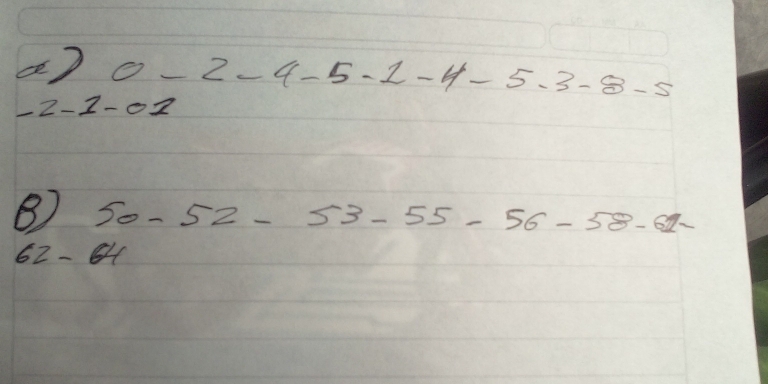 a) 0 - 2 - 4 - 5 - 1 - 4 - 5 - 3 - 8 - 5
- 2 - 1 - 01
B) 50 - 52 - 53 - 55 - 56 - 58 - 61 -
62 - 64